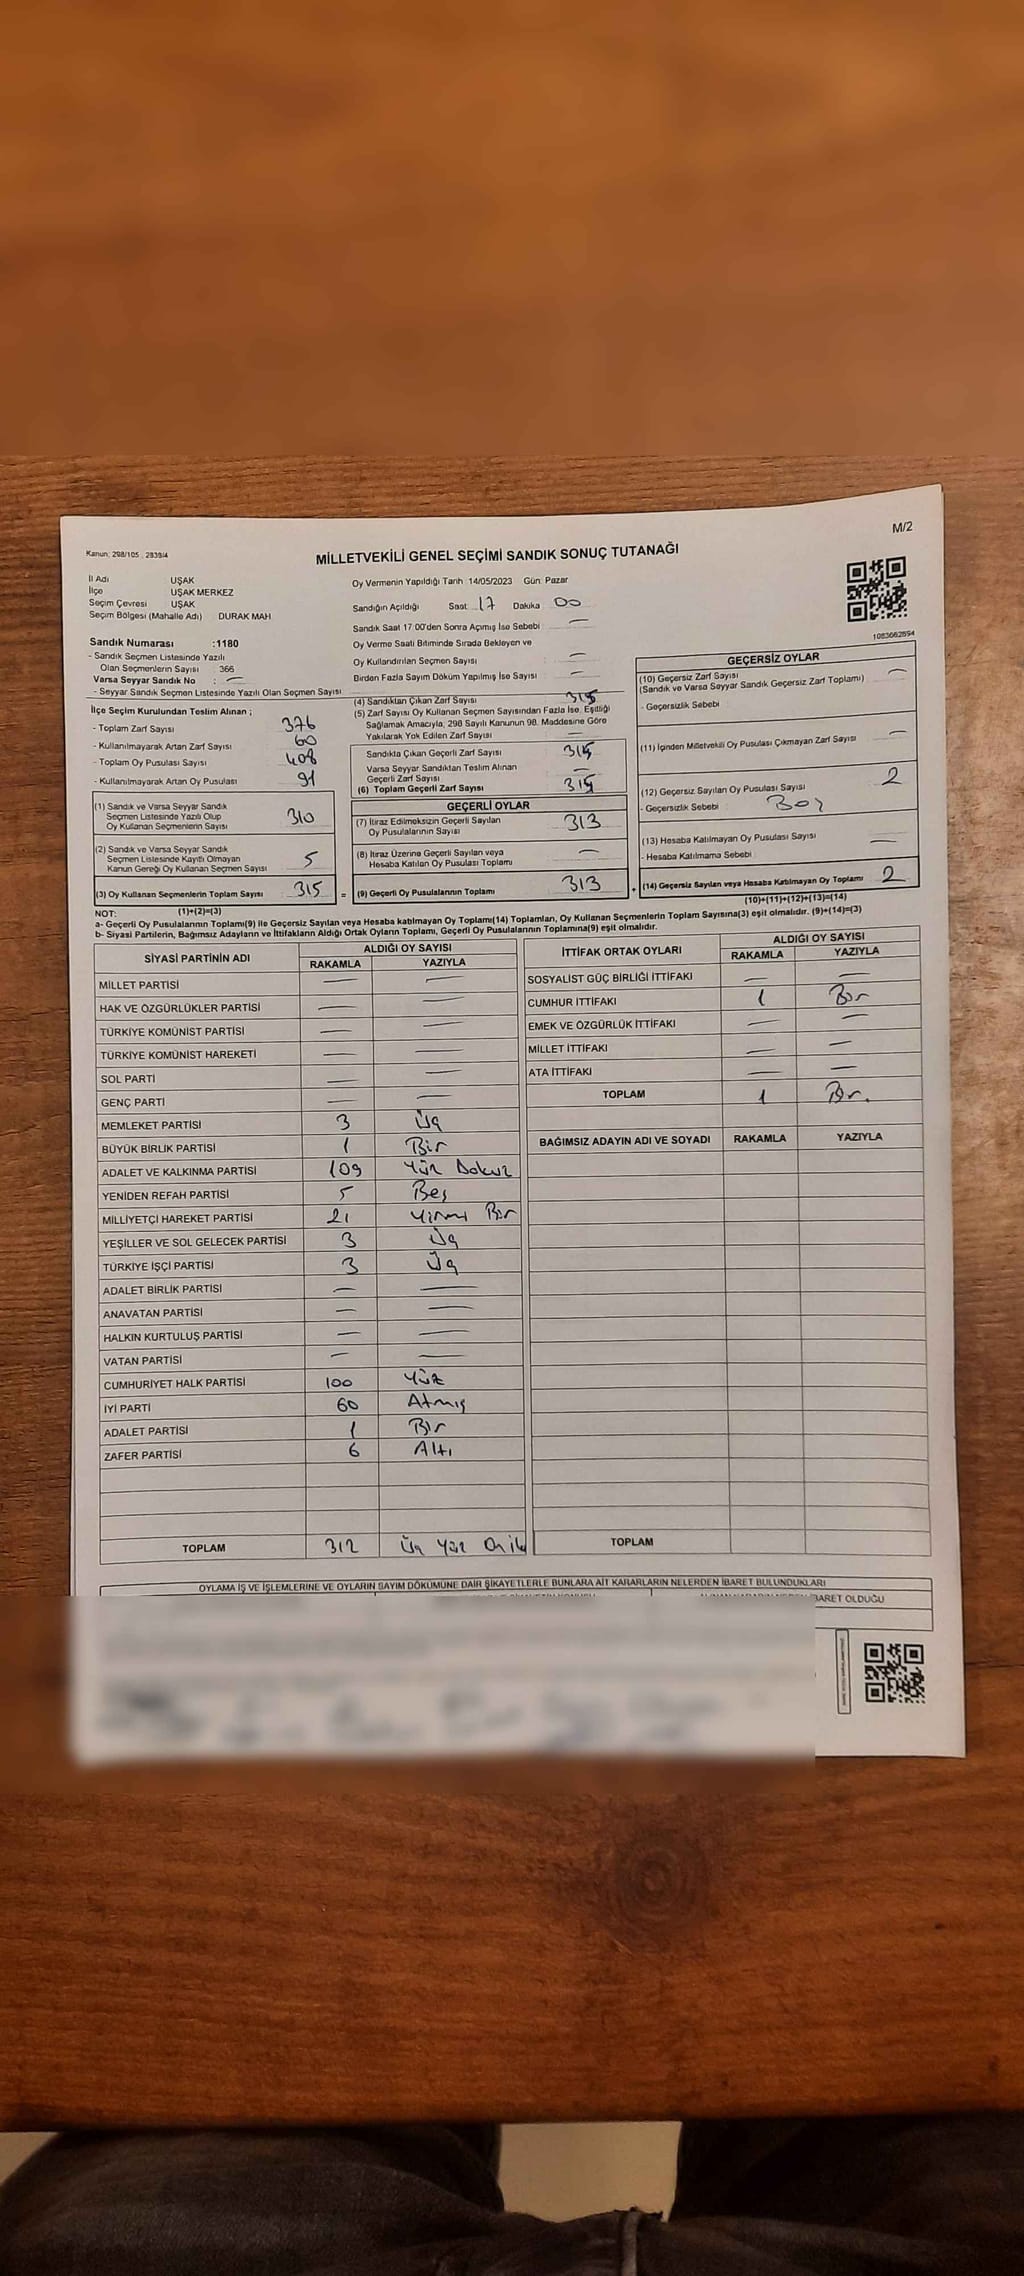 M/2
Kanun: 298/105 , 2839/4
MİLLETVEKİLİ GENEL SEÇİMİ SANDIK SONUÇ TUTANAĞI
İl Adı UŞAK
İlçe UŞAK MERKEZ
Seçim Çevresi UŞAK
Seçim Bölgesi (Mahalle Adı) DURAK MAH
Sandık Numarası :1180
- Sandık Seçmen Listesinde Yazılı
Olan Seçmenlerin Sayısı : 366
Varsa Seyyar Sandık No : —
- Seyyar Sandık Seçmen Listesinde Yazılı Olan Seçmen Sayısı
Oy Vermenin Yapıldığı Tarih :14/05/2023 Gün: Pazar
Sandığın Açıldığı Saat 17 Dakika 00
Sandık Saat 17:00'den Sonra Açımış İse Sebebi —
Oy Verme Saati Bitiminde Sırada Bekleyen ve
Oy Kullandırılan Seçmen Sayısı —
Birden Fazla Sayım Döküm Yapılmış İse Sayısı —
1083662894
İlçe Seçim Kurulundan Teslim Alınan ;
- Toplam Zarf Sayısı 376
- Kullanılmayarak Artan Zarf Sayısı 60
- Toplam Oy Pusulası Sayısı 408
- Kullanılmayarak Artan Oy Pusulası 91
(1) Sandık ve Varsa Seyyar Sandık
Seçmen Listesinde Yazılı Olup
Oy Kullanan Seçmenlerin Sayısı 310
(2) Sandık ve Varsa Seyyar Sandık
Seçmen Listesinde Kayıtlı Olmayan
Kanun Gereği Oy Kullanan Seçmen Sayısı 5
(3) Oy Kullanan Seçmenlerin Toplam Sayısı 315 =
(1)+(2)=(3)
(4) Sandıktan Çıkan Zarf Sayısı 315
(5) Zarf Sayısı Oy Kullanan Seçmen Sayısından Fazla İse, Eşitliği
Sağlamak Amacıyla, 298 Sayılı Kanunun 98. Maddesine Göre
Yakılarak Yok Edilen Zarf Sayısı —
Sandıkta Çıkan Geçerli Zarf Sayısı 315
Varsa Seyyar Sandıktan Teslim Alınan
Geçerli Zarf Sayısı —
(6) Toplam Geçerli Zarf Sayısı 315
GEÇERLİ OYLAR
(7) İtiraz Edilmeksizin Geçerli Sayılan
Oy Pusulalarının Sayısı 313
(8) İtiraz Üzerine Geçerli Sayılan veya
Hesaba Katılan Oy Pusulası Toplamı —
(9) Geçerli Oy Pusulalarının Toplamı 313 +
GEÇERSİZ OYLAR
(10) Geçersiz Zarf Sayısı —
(Sandık ve Varsa Seyyar Sandık Geçersiz Zarf Toplamı)
- Geçersizlik Sebebi
(11) İçinden Milletvekili Oy Pusulası Çıkmayan Zarf Sayısı —
(12) Geçersiz Sayılan Oy Pusulası Sayısı 2
- Geçersizlik Sebebi : Boş
(13) Hesaba Katılmayan Oy Pusulası Sayısı —
- Hesaba Katılmama Sebebi
(14) Geçersiz Sayılan veya Hesaba Katılmayan Oy Toplamı 2
(10)+(11)+(12)+(13)=(14)
NOT:
a- Geçerli Oy Pusulalarının Toplamı(9) ile Geçersiz Sayılan veya Hesaba katılmayan Oy Toplamı(14) Toplamları, Oy Kullanan Seçmenlerin Toplam Sayısına(3) eşit olmalıdır. (9)+(14)=(3)
b- Siyasi Partilerin, Bağımsız Adayların ve İttifakların Aldığı Ortak Oyların Toplamı, Geçerli Oy Pusulalarının Toplamına(9) eşit olmalıdır.
SİYASİ PARTİNİN ADI ALDIĞI OY SAYISI
RAKAMLA YAZIYLA
MİLLET PARTİSİ — —
HAK VE ÖZGÜRLÜKLER PARTİSİ — —
TÜRKİYE KOMÜNİST PARTİSİ — —
TÜRKİYE KOMÜNİST HAREKETİ — —
SOL PARTİ — —
GENÇ PARTİ — —
MEMLEKET PARTİSİ 3 Üç
BÜYÜK BİRLİK PARTİSİ 1 Bir
ADALET VE KALKINMA PARTİSİ 109 Yüz Dokuz
YENİDEN REFAH PARTİSİ 5 Beş
MİLLİYETÇİ HAREKET PARTİSİ 21 Yirmi Bir
YEŞİLLER VE SOL GELECEK PARTİSİ 3 Üç
TÜRKİYE İŞÇİ PARTİSİ 3 Üç
ADALET BİRLİK PARTİSİ — —
ANAVATAN PARTİSİ — —
HALKIN KURTULUŞ PARTİSİ — —
VATAN PARTİSİ — —
CUMHURİYET HALK PARTİSİ 100 Yüz
İYİ PARTİ 60 Atmış
ADALET PARTİSİ 1 Bir
ZAFER PARTİSİ 6 Altı
TOPLAM 312 Üç Yüz On iki
İTTİFAK ORTAK OYLARI ALDIĞI OY SAYISI
RAKAMLA YAZIYLA
SOSYALİST GÜÇ BİRLİĞİ İTTİFAKI — —
CUMHUR İTTİFAKI 1 Bir
EMEK VE ÖZGÜRLÜK İTTİFAKI — —
MİLLET İTTİFAKI — —
ATA İTTİFAKI — —
TOPLAM 1 Bir.
BAĞIMSIZ ADAYIN ADI VE SOYADI RAKAMLA YAZIYLA
TOPLAM
OYLAMA İŞ VE İŞLEMLERİNE VE OYLARIN SAYIM DÖKÜMÜNE DAİR ŞİKAYETLERLE BUNLARA AİT KARARLARIN NELERDEN İBARET BULUNDUKLARI
İBARET OLDUĞU